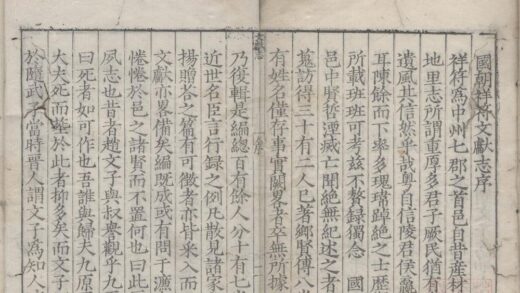 國朝祥符文獻志序
祥符爲中州七郡之首邑自昔産材
地里志所謂重厚多君子厥民猶有
遺風其信然乎哉粤自信陵君侯嬴
耳陳餘而下率多瑰瑋踔絶之士歷
所載班班可考兹不贅録獨念 國
邑中賢哲湮滅亡聞絶無紀述之者
蒐訪得三十有二人已著鄉賢傳
有姓名僅存事實闕畧者卒無所據
乃復輯是編總百有餘人分十有七
近世名臣言行録之例凡散見諸家
揚贈荅之篇有可徵者亦皆采入而
文獻亦畧備矣編既成或有問于
惓惓於邑之諸賢而不置何也曰此
夙志也昔者趙文子與叔譽觀乎九
曰死者如可作也吾誰與歸夫九原
大夫死而塟於此者抑多矣而文子
於隨武子當時晉人謂文子爲知人